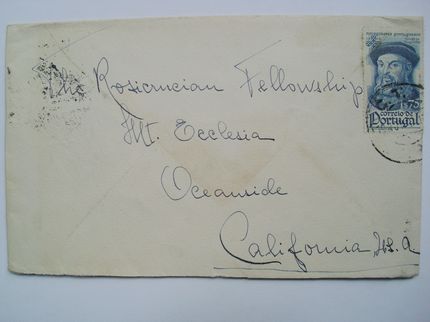 The Rosicrucian Fellowship
Mt. Ecclesia
Oceanside
California, Us. a
navegadores portugueses
1$75
correio de
Portugal